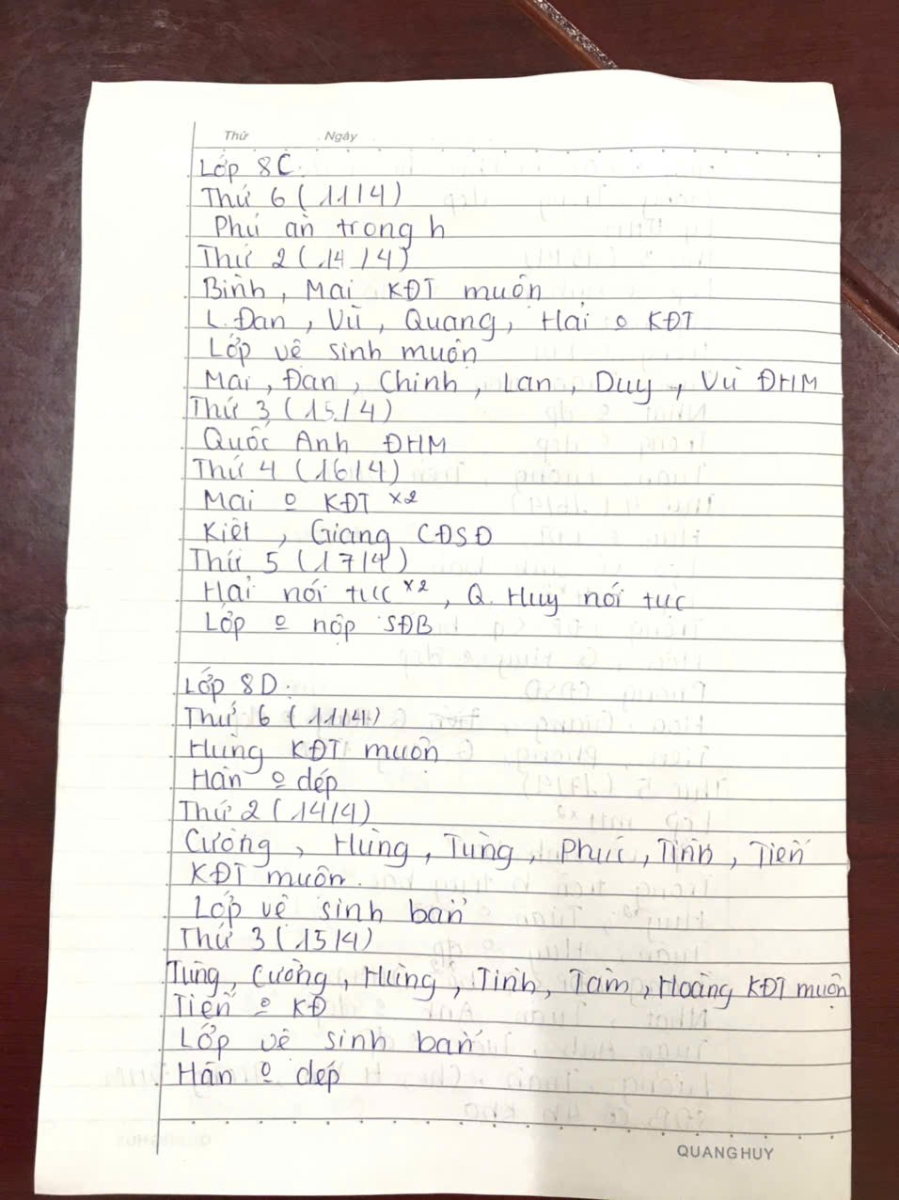 Thứ Ngày
Lớp 8C:
Thứ 6 (11/4)
Phú ăn trong h
Thứ 2 (14/4)
Bình, Mai KĐT muộn
L.Đan, Vũ, Quang, Hải o KĐT
Lớp vệ sinh muộn
Mai, Đan, Chinh, Lan, Duy, Vũ ĐHM
Thứ 3 (15/4)
Quốc Anh ĐHM
Thứ 4 (16/4)
Mai o KĐT x2
Kiệt, Giang CĐSĐ
Thứ 5 (17/4)
Hải nói tục x2, Q. Huy nói tục
Lớp o nộp SĐB
Lớp 8D:
Thứ 6 (11/4)
Hùng KĐT muộn
Hân o dép
Thứ 2 (14/4)
Cường, Hùng, Tùng, Phúc, Tình, Tiến
KĐT muộn.
Lớp vệ sinh bẩn
Thứ 3 (15/4)
Tùng, Cường, Hùng, Tình, Tâm, Hoàng KĐT muộn
Tiến o KĐ
Lớp vệ sinh bẩn
Hân o dép
QUANG HUY